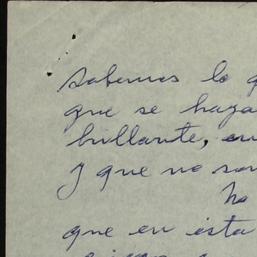 Sabemos lo
que se haya
brillante,
y que no
que en esta